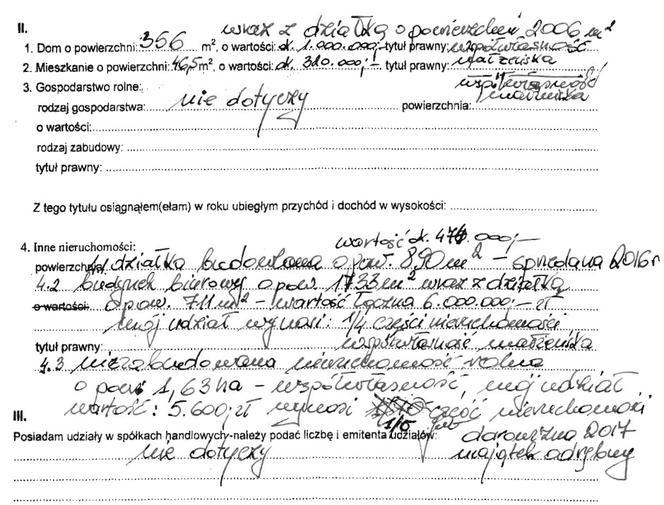 II.
wraz z działką o powierzchni 2006 m²
1. Dom o powierzchni: 356 m², o wartości: ok. 1.000.000,- tytuł prawny: współwłasność
2. Mieszkanie o powierzchni: 46,5 m², o wartości: ok. 320.000,- tytuł prawny: małżeńska
3. Gospodarstwo rolne: współwłasność
rodzaj gospodarstwa: nie dotyczy powierzchnia: małżeńska
o wartości:
rodzaj zabudowy:
tytuł prawny:
Z tego tytułu osiągnąłem(ełam) w roku ubiegłym przychód i dochód w wysokości:
4. Inne nieruchomości: wartość ok. 000,-
powierzchnia: działka budowlana o pow. 890 m² - sprzedana 2016 r
4.2 budynek biurowy o pow. 1733 m² wraz z działką
o wartości: o pow. 711 m² - wartość łączna 6.000.000,- zł
mój udział wynosi: 1/4 części nieruchomości
tytuł prawny: współwłasność małżeńska
4.3 niezabudowana nieruchomość rolna
o pow. 1,63 ha - współwłasność, mój udział
wartość: 5.600,- zł wynosi 1/6 część nieruchomości
III.
Posiadam udziały w spółkach handlowych-należy podać liczbę i emitenta udziałów: darowizna 2017
nie dotyczy majątek odrębny